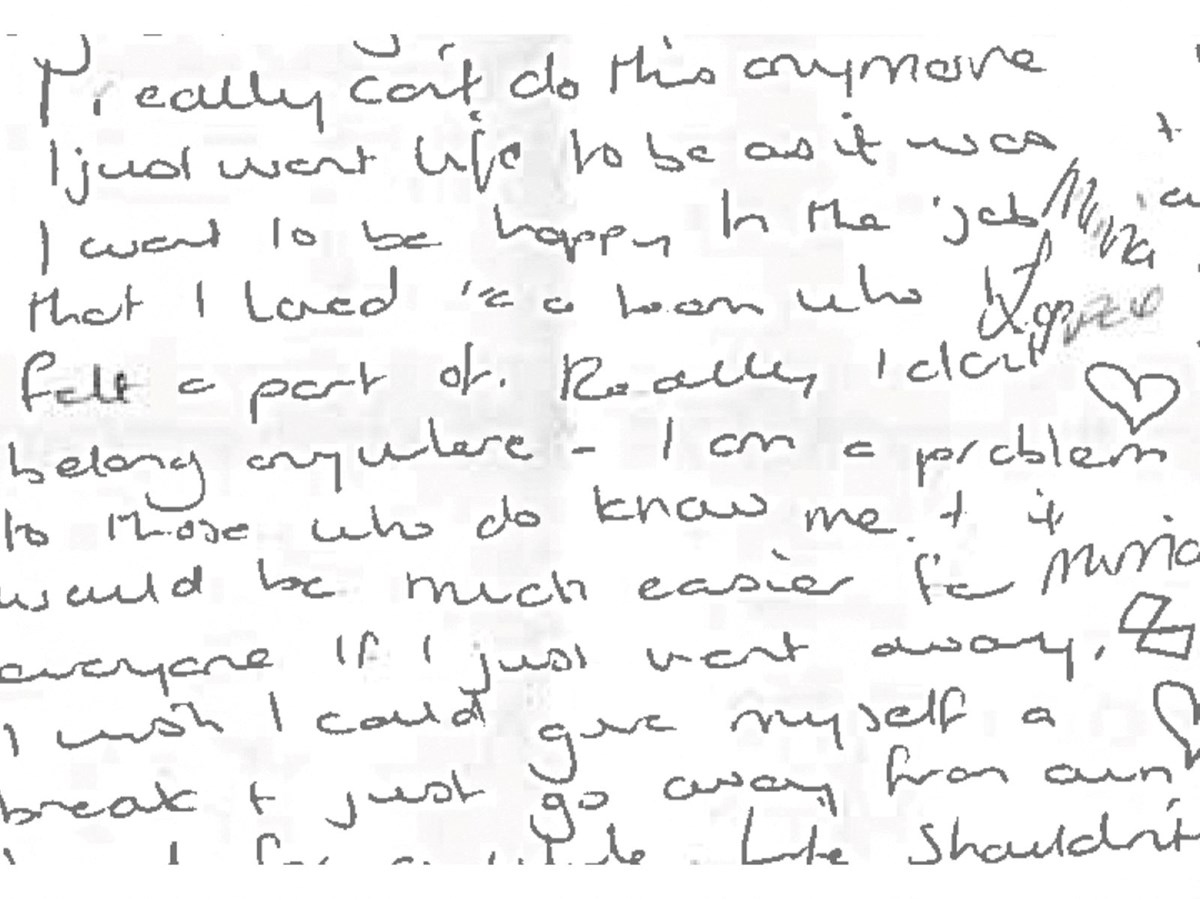 I really can't do this anymore
I just want life to be as it was
I want to be happy in the job
that I loved in a team who I
felt a part of. Really I don't
belong anywhere - I am a problem
to those who do know me + it
would be much easier for
everyone if I just went away.
I wish I could give myself a
break + just go away from
Life shouldn't